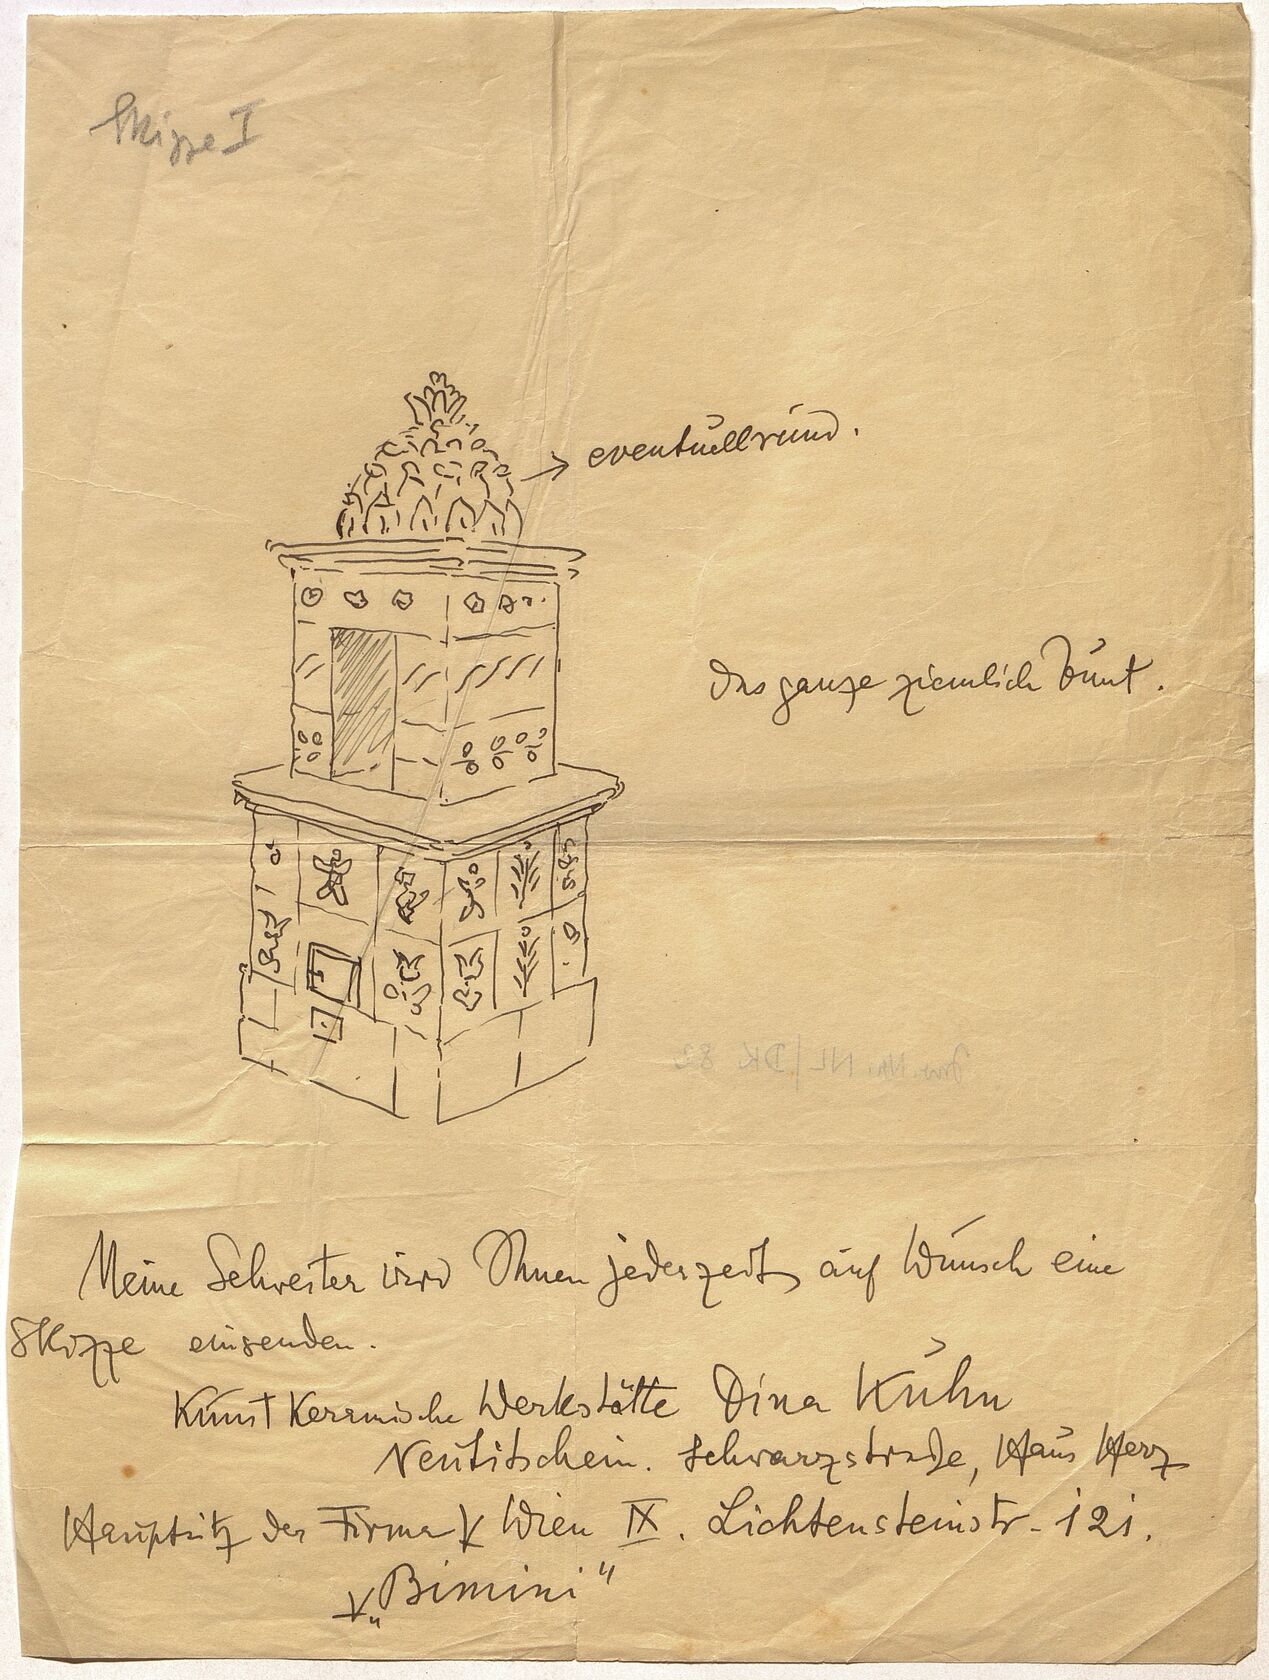 Skizze I
eventuell rund.
das ganze ziemlich bunt.
Inv. Nr. NL/DK 82
Meine Schwester wird Ihnen jederzeit auf Wunsch eine
Skizze einsenden.
Kunst Keramische Werkstätte Dina Kuhn
Neutitschein. Schwarzstraße, Haus Herz
Hauptsitz der Firma Wien IX. Lichtensteinstr - 121.
„Bimini"